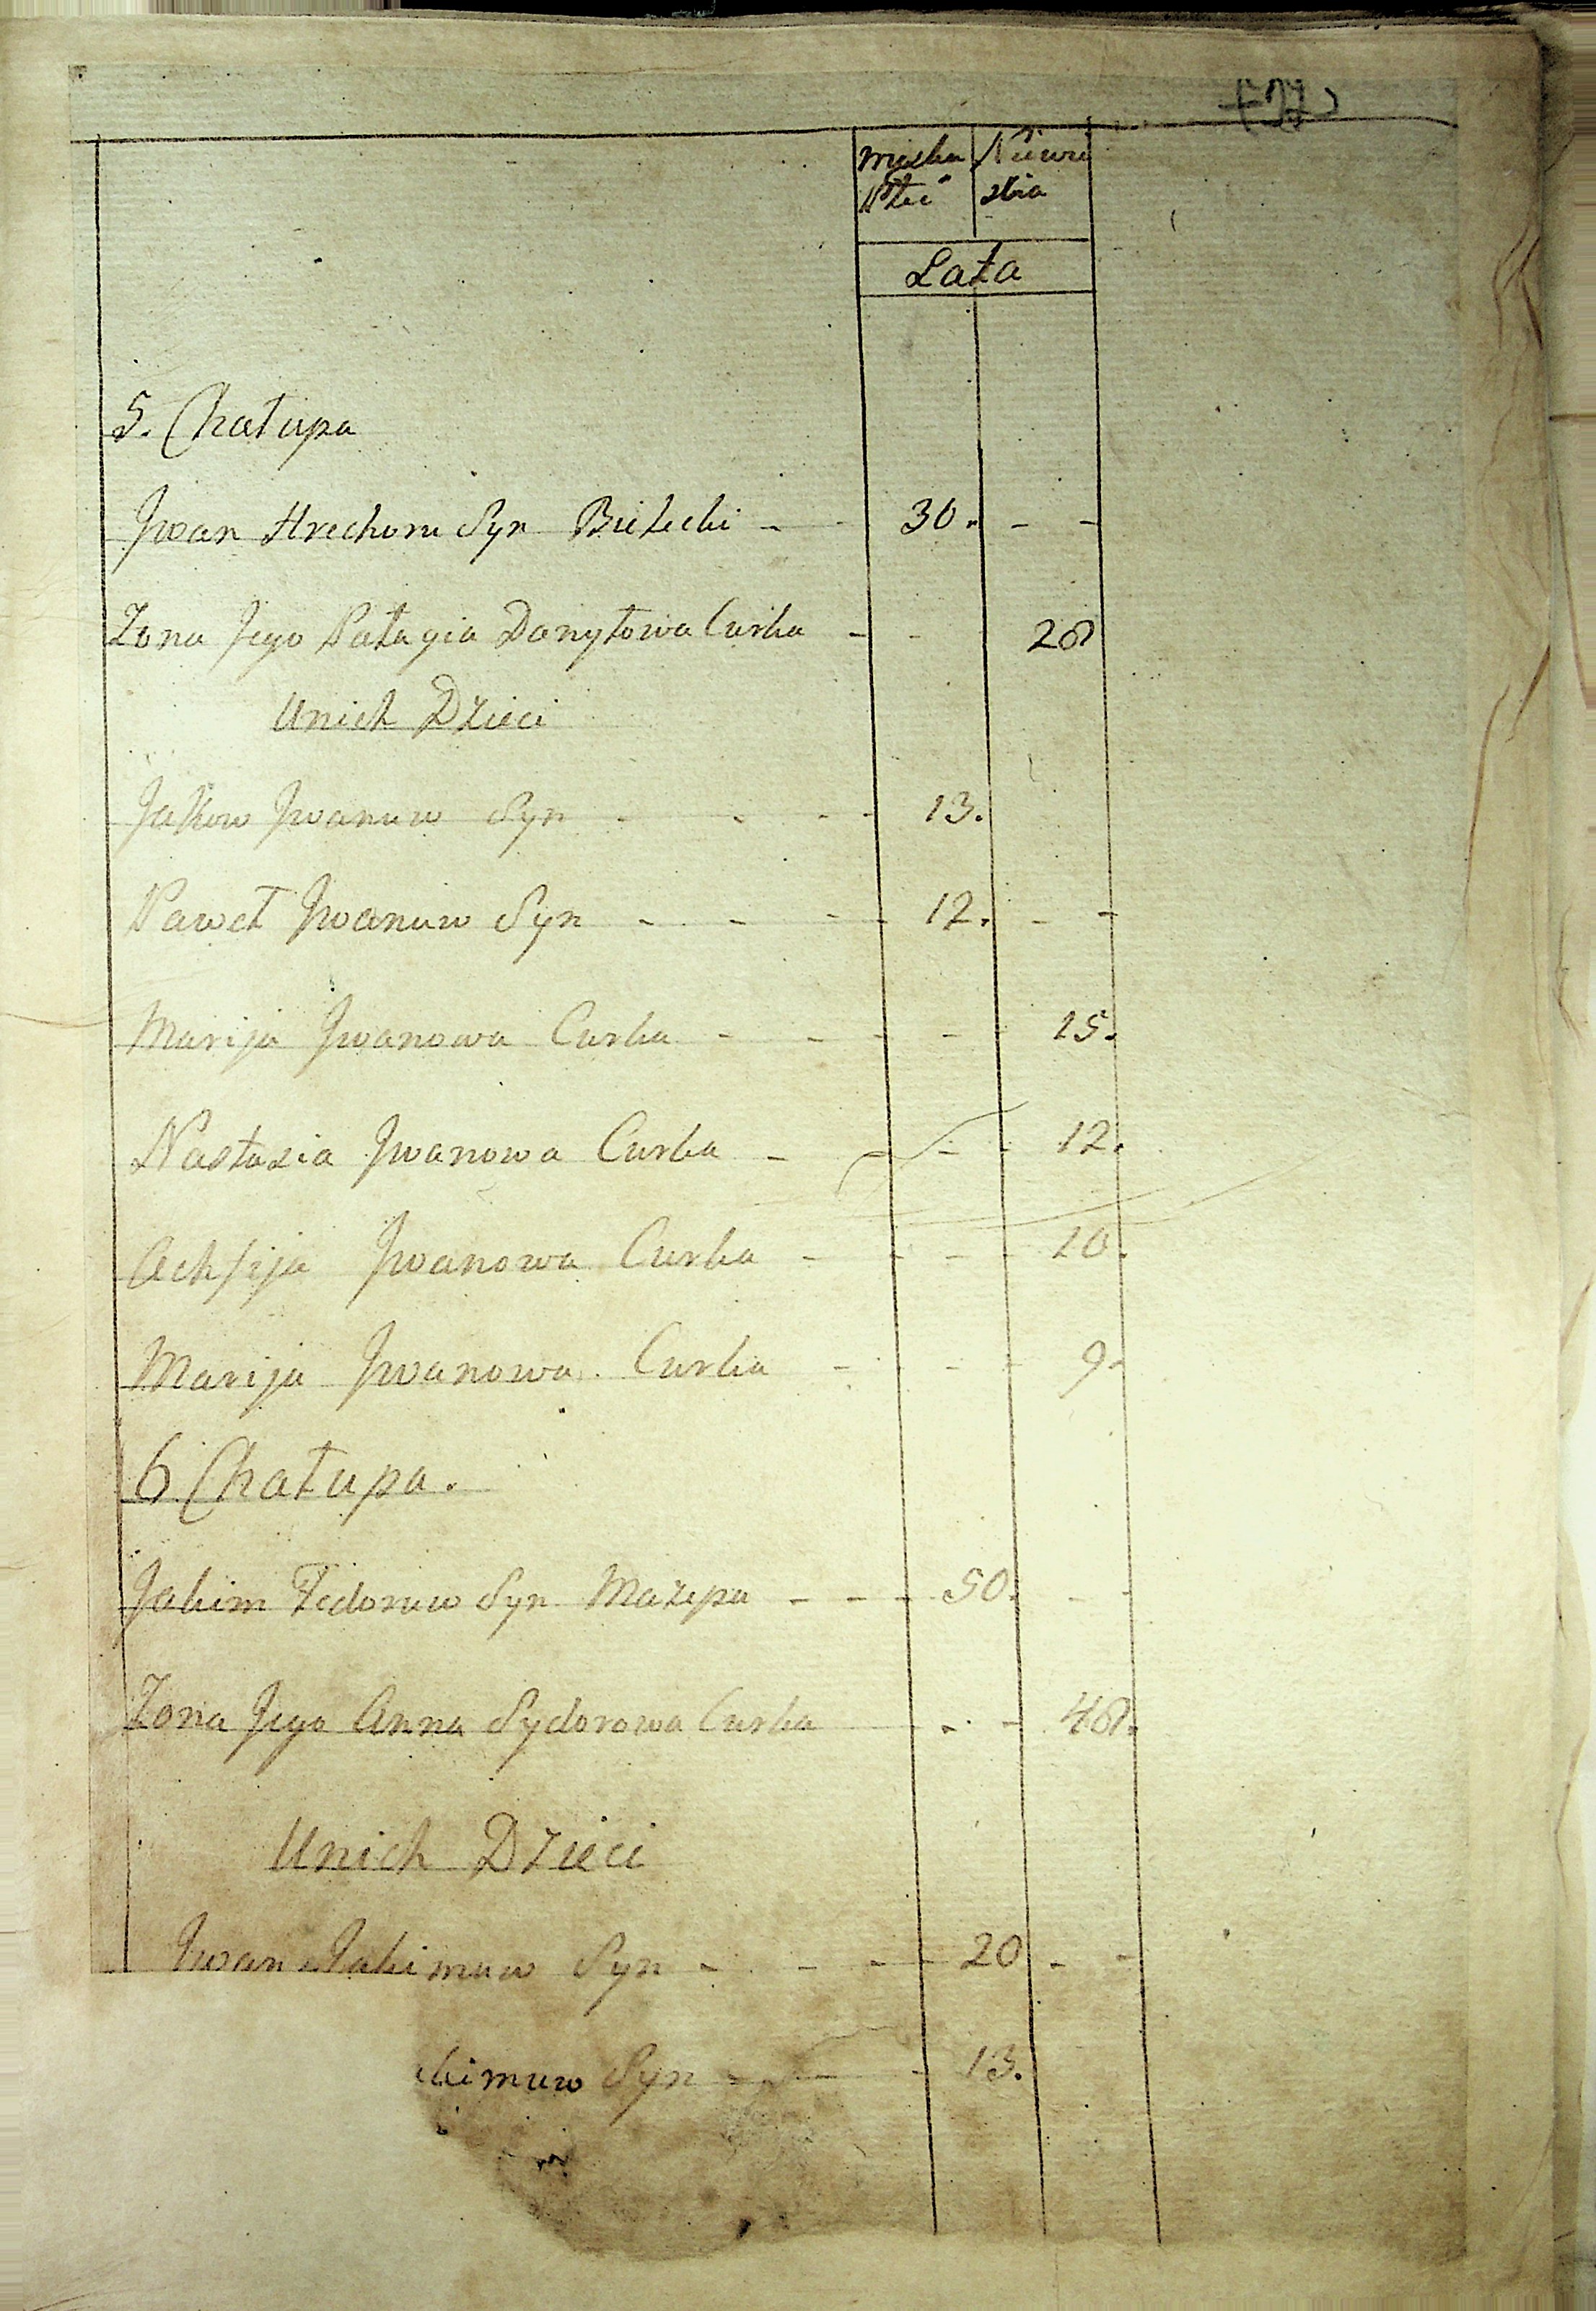 męska Niewie
Płeć ścia
Lata
5. Chałupa
Jwan Hrehoru Syn Bielecki - - 30. - -
Zona Jego Pałagia Danyłowa Curka - - 28
Unich Dzieci
Jakow Jwanuw Syn - - - - 13.
Paweł Jwanuw Syn - - - - 12. - -
Marija Jwanowa Curka - - - - 15.
Nastazia Jwanowa Curka - - - - 12.
Achsija Jwanowa Curka - - - - 10.
Marija Jwanowa Curka - - - - 9.
6 Chałupa.
Jakim Fedoruw Syn Mazepa - - - 50. - -
Zona Jego Anna Sydorowa Curka - - 48.
Unich Dzieci
Jwan Jakimuw Syn - - - - 20 - -
kimuw Syn - - - 13.